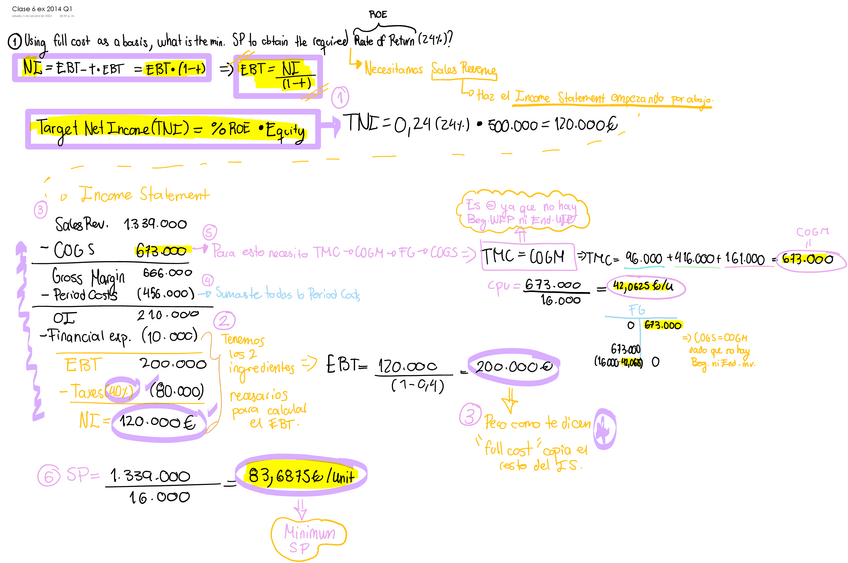 Clase 6 ex 2014 Q1
ROE
① Using full cost as a basis, what is the min. SP to obtain the required Rate of Return (24%)?
NI = EBT - t · EBT = EBT · (1-t) ⇒ EBT = NI / (1-t)
Necesitamos Sales Revenue
Haz el Income Statement empezando por abajo.
①
Target Net Income (TNI) = % ROE · Equity → TNI = 0,24 (24%) · 500.000 = 120.000 €
Income Statement
③
Sales Rev. 1.339.000
- COGS 673.000
⑤
Para esto necesito TMC → COGM → FG → COGS ⇒ TMC = COGM ⇒ TMC = 96.000 + 416.000 + 161.000 = 673.000
Es = ya que no hay
Beg. WIP ni End. WIP
COGM
Gross Margin 666.000
- Period Costs (456.000)
④
Sumaste todos lo Period Costs
cpu = 673.000 / 16.000 = 42,0625 €/u
FG
0 673.000
673.000
0
⇒ COGS = COGM
dado que no hay
Beg. ni End. inv.
OI 210.000
- Financial exp. (10.000)
②
EBT 200.000
- Taxes (40%) (80.000)
NI = 120.000 €
Tenemos
los 2
ingredientes
necesarios
para calcular
el EBT.
⇒ EBT = 120.000 / (1-0,4) = 200.000 €
③ Pero como te dicen
"full cost" copia el
resto del IS.
⑥ SP = 1.339.000 / 16.000 = 83,6875 € /unit
Minimum
SP